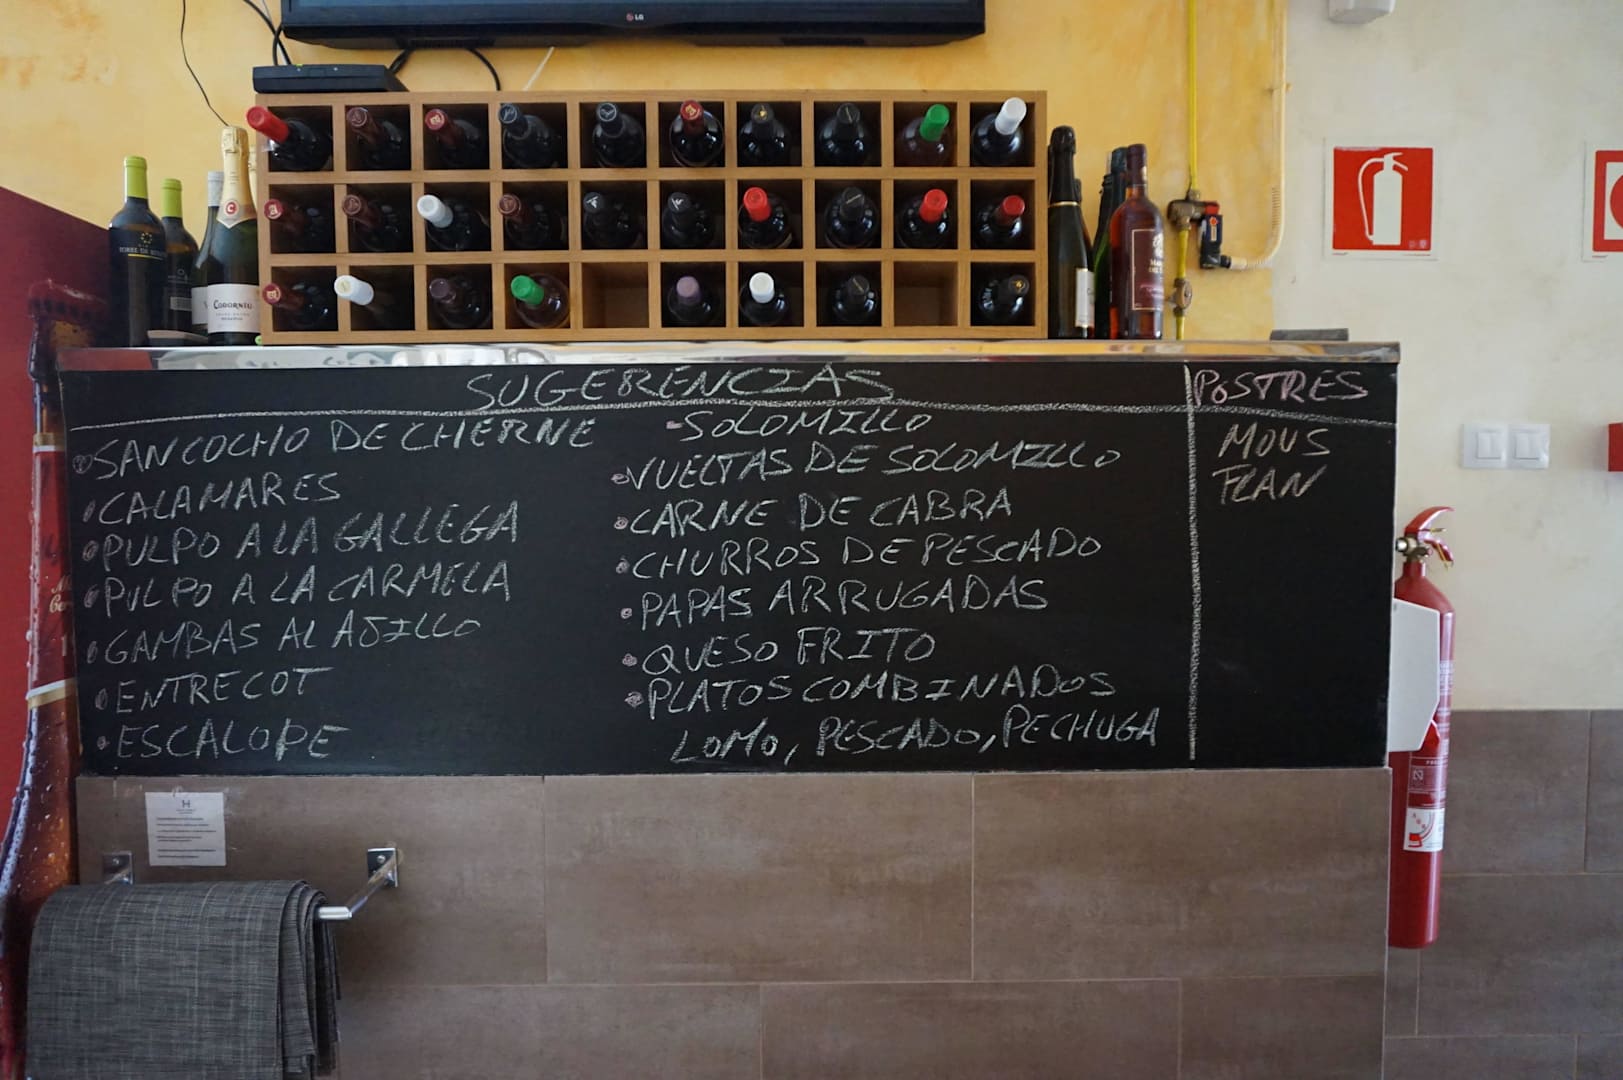 LG
CODORNÍU
SUGERENCIAS
SANCOCHO DE CHERNE
CALAMARES
PULPO A LA GALLEGA
PULPO A LA CARMELA
GAMBAS AL AJILLO
ENTRECOT
ESCALOPE
SOLOMILLO
VUELTAS DE SOLOMILLO
CARNE DE CABRA
CHURROS DE PESCADO
PAPAS ARRUGADAS
QUESO FRITO
PLATOS COMBINADOS
LOMO, PESCADO, PECHUGA
POSTRES
MOUS
FLAN